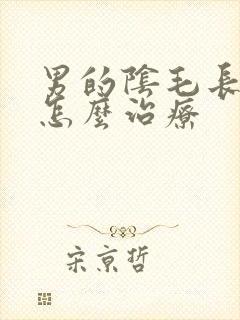 男的陰毛長
怎麼治療
宋京哲